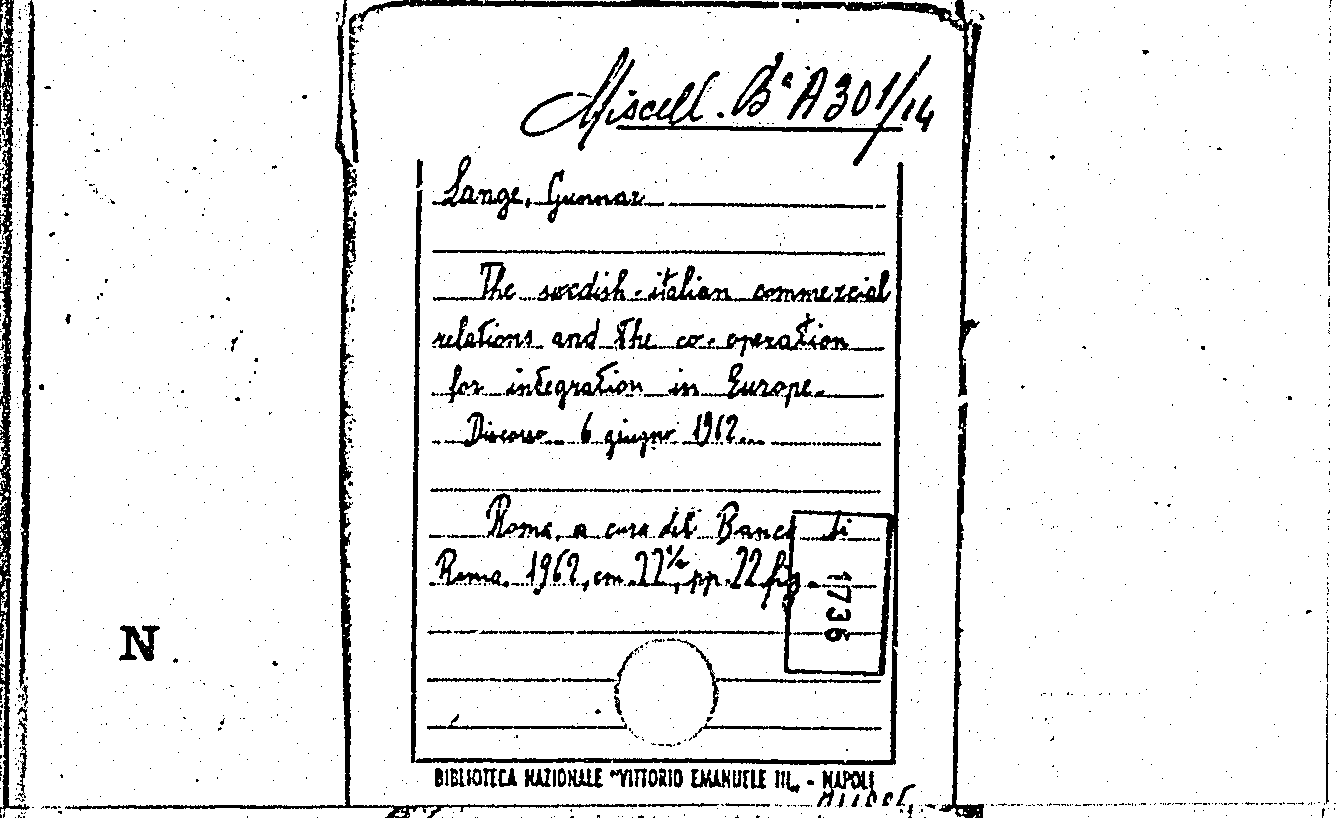 Miscell. Bª A 301/14
Lange, Gunnar
The swedish-italian commercial
relations and the co-operation
for integration in Europe.
Discorso 6 giugno 1962.
Roma, a cura del Banco di
Roma, 1962, cm. 22½, pp. 22 fig.
1736
N
BIBLIOTECA NAZIONALE "VITTORIO EMANUELE III„ - NAPOLI